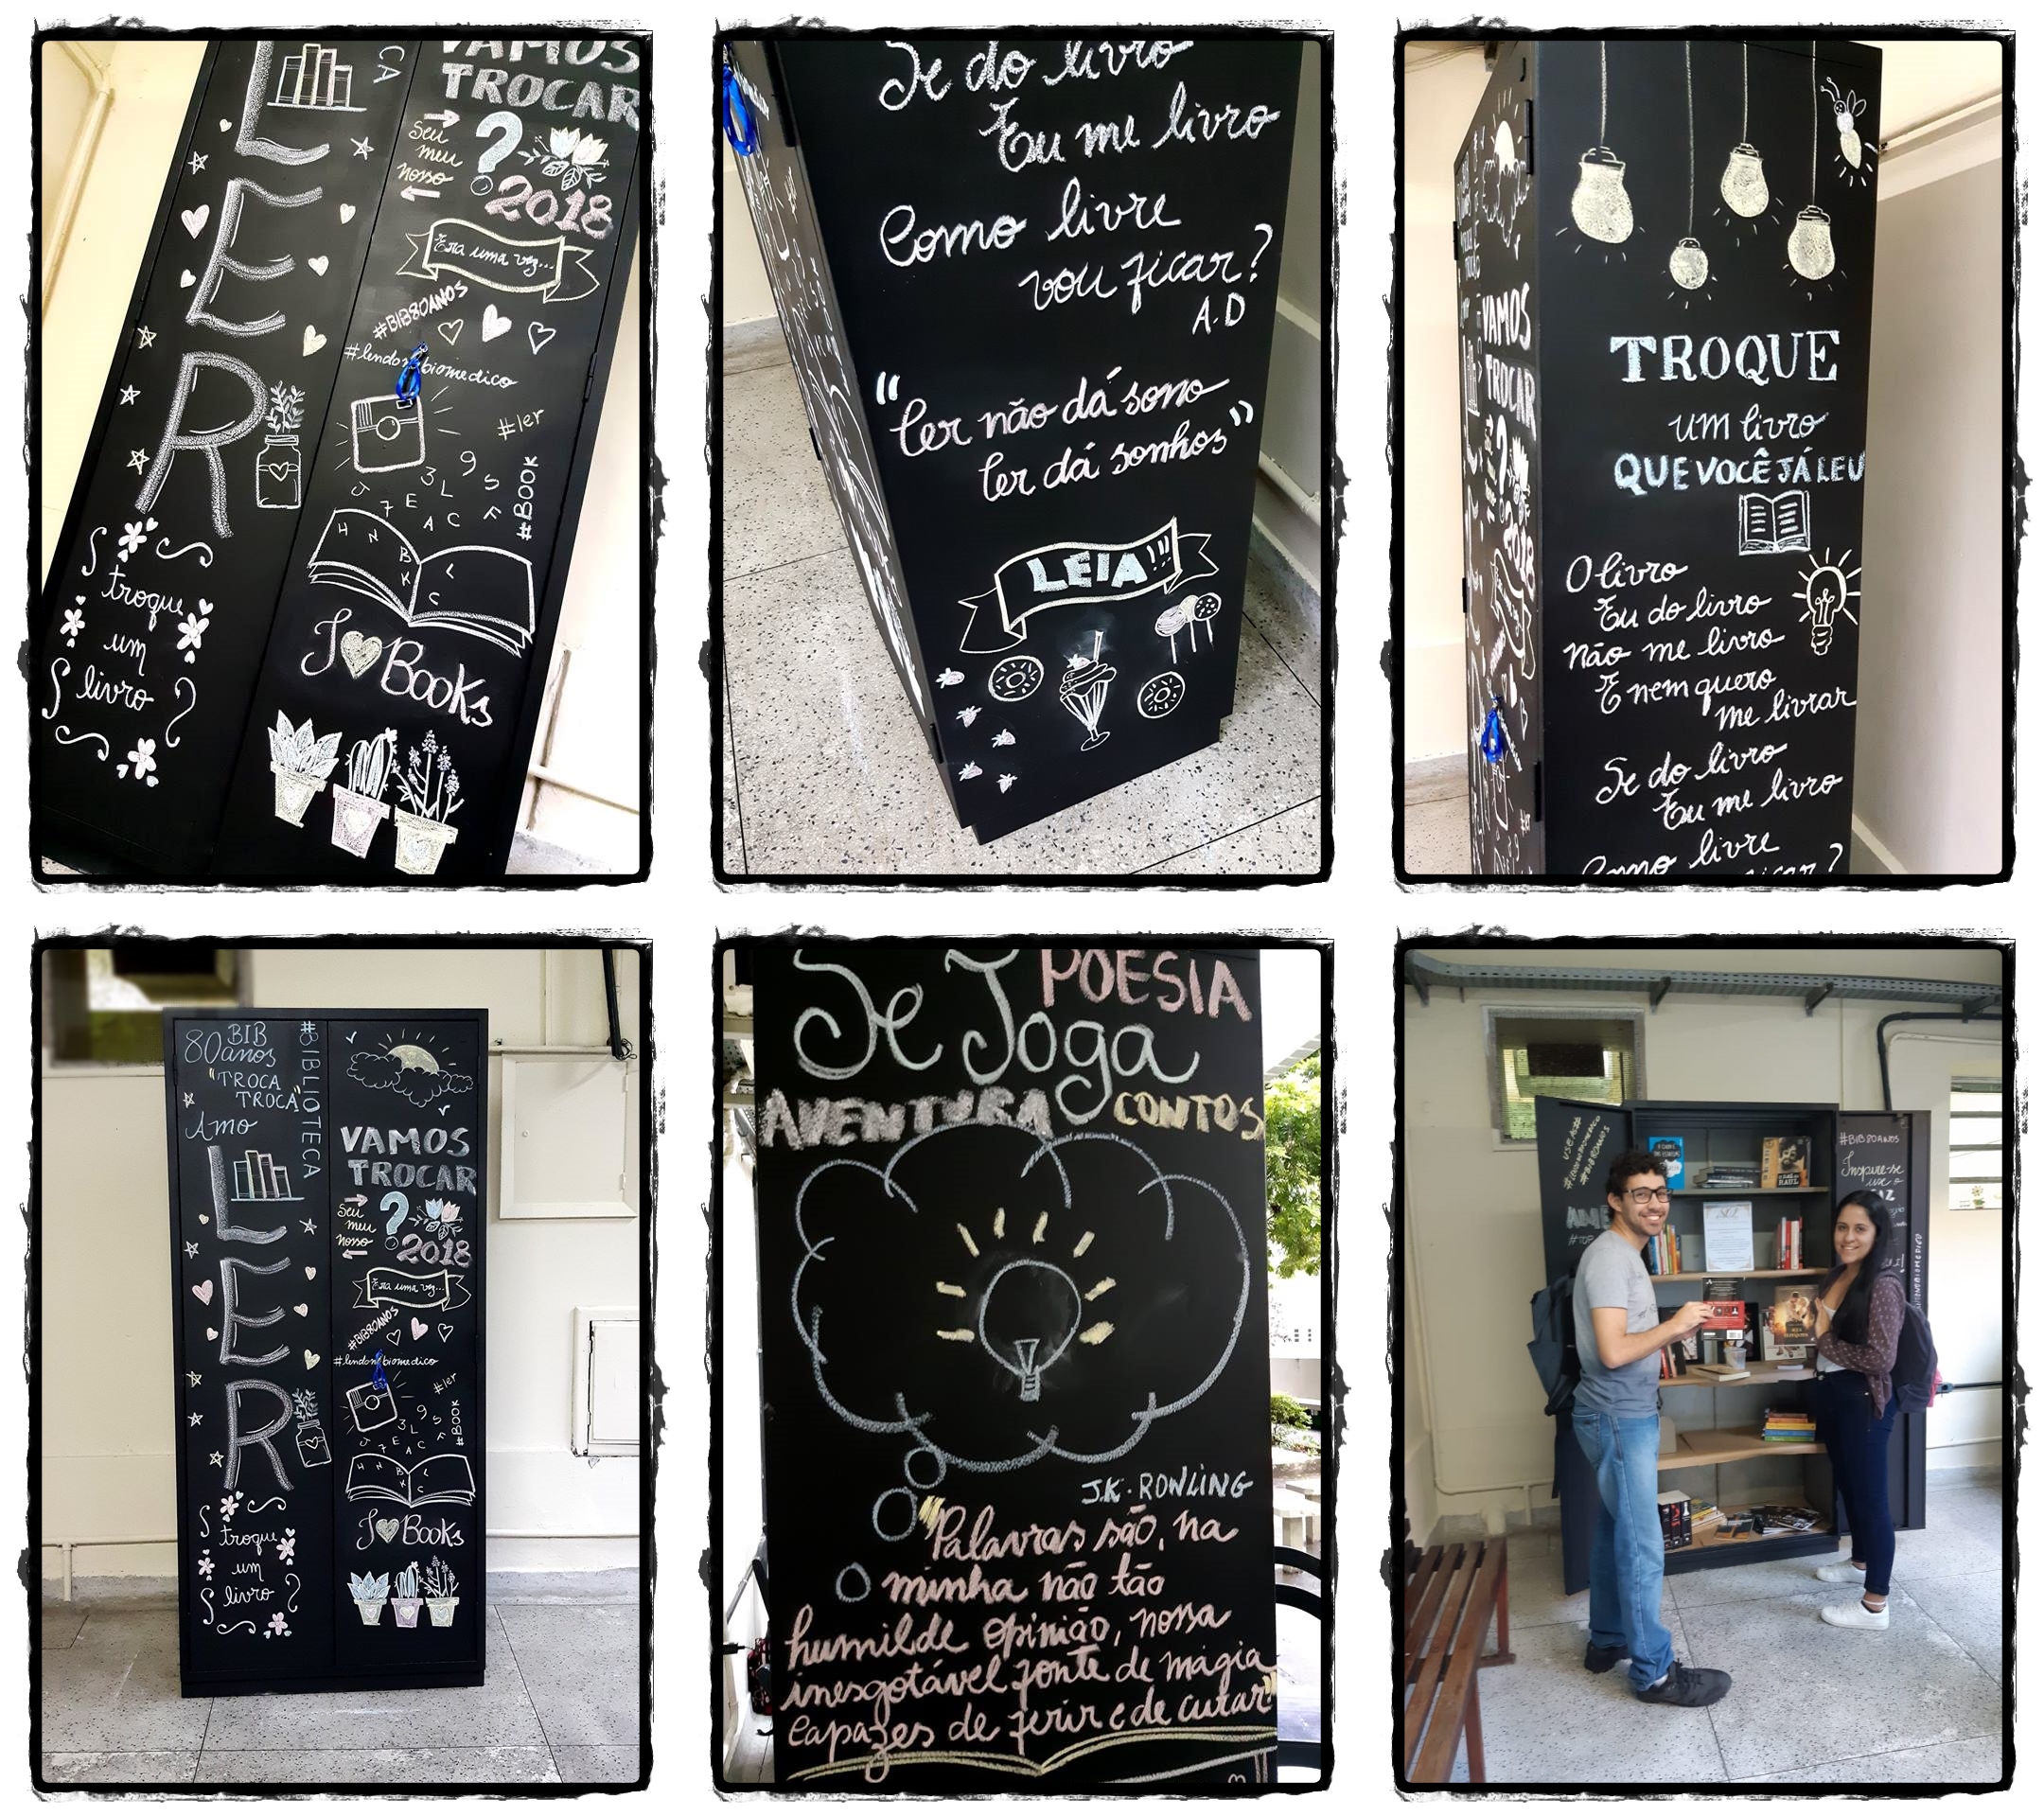 CA
L
E
R
troque
um
livro
VAMOS
TROCAR
?
Seu
meu
nosso
2018
Era uma vez...
#BIB80ANOS
#lendo biomedico
#ler
#BOOK
I Books
Se do livro
Eu me livro
Como livre
vou ficar?
A.D
"Ler não dá sono
ler dá sonhos"
LEIA!!!
VAMOS
TROCAR
?
2018
TROQUE
um livro
QUE VOCÊ JÁ LEU
O livro
Eu do livro
Não me livro
E nem quero
me livrar
Se do livro
Eu me livro
Como livre
ficar?
BIB
80 anos
"TROCA
TROCA"
#BIBLIOTECA
Amo
L
E
R
troque
um
livro
VAMOS
TROCAR
?
Seu
meu
nosso
2018
Era uma vez...
#BIB80ANOS
#lendo biomedico
#ler
#BOOK
I Books
POESIA
Se Joga
AVENTURA CONTOS
J.K. ROWLING
"Palavras são, na
minha não tão
humilde opinião, nossa
inesgotável fonte de magia
Capazes de ferir e de curar"
#BIB80ANOS
#BIB80ANOS
Inspire-se
RAUL